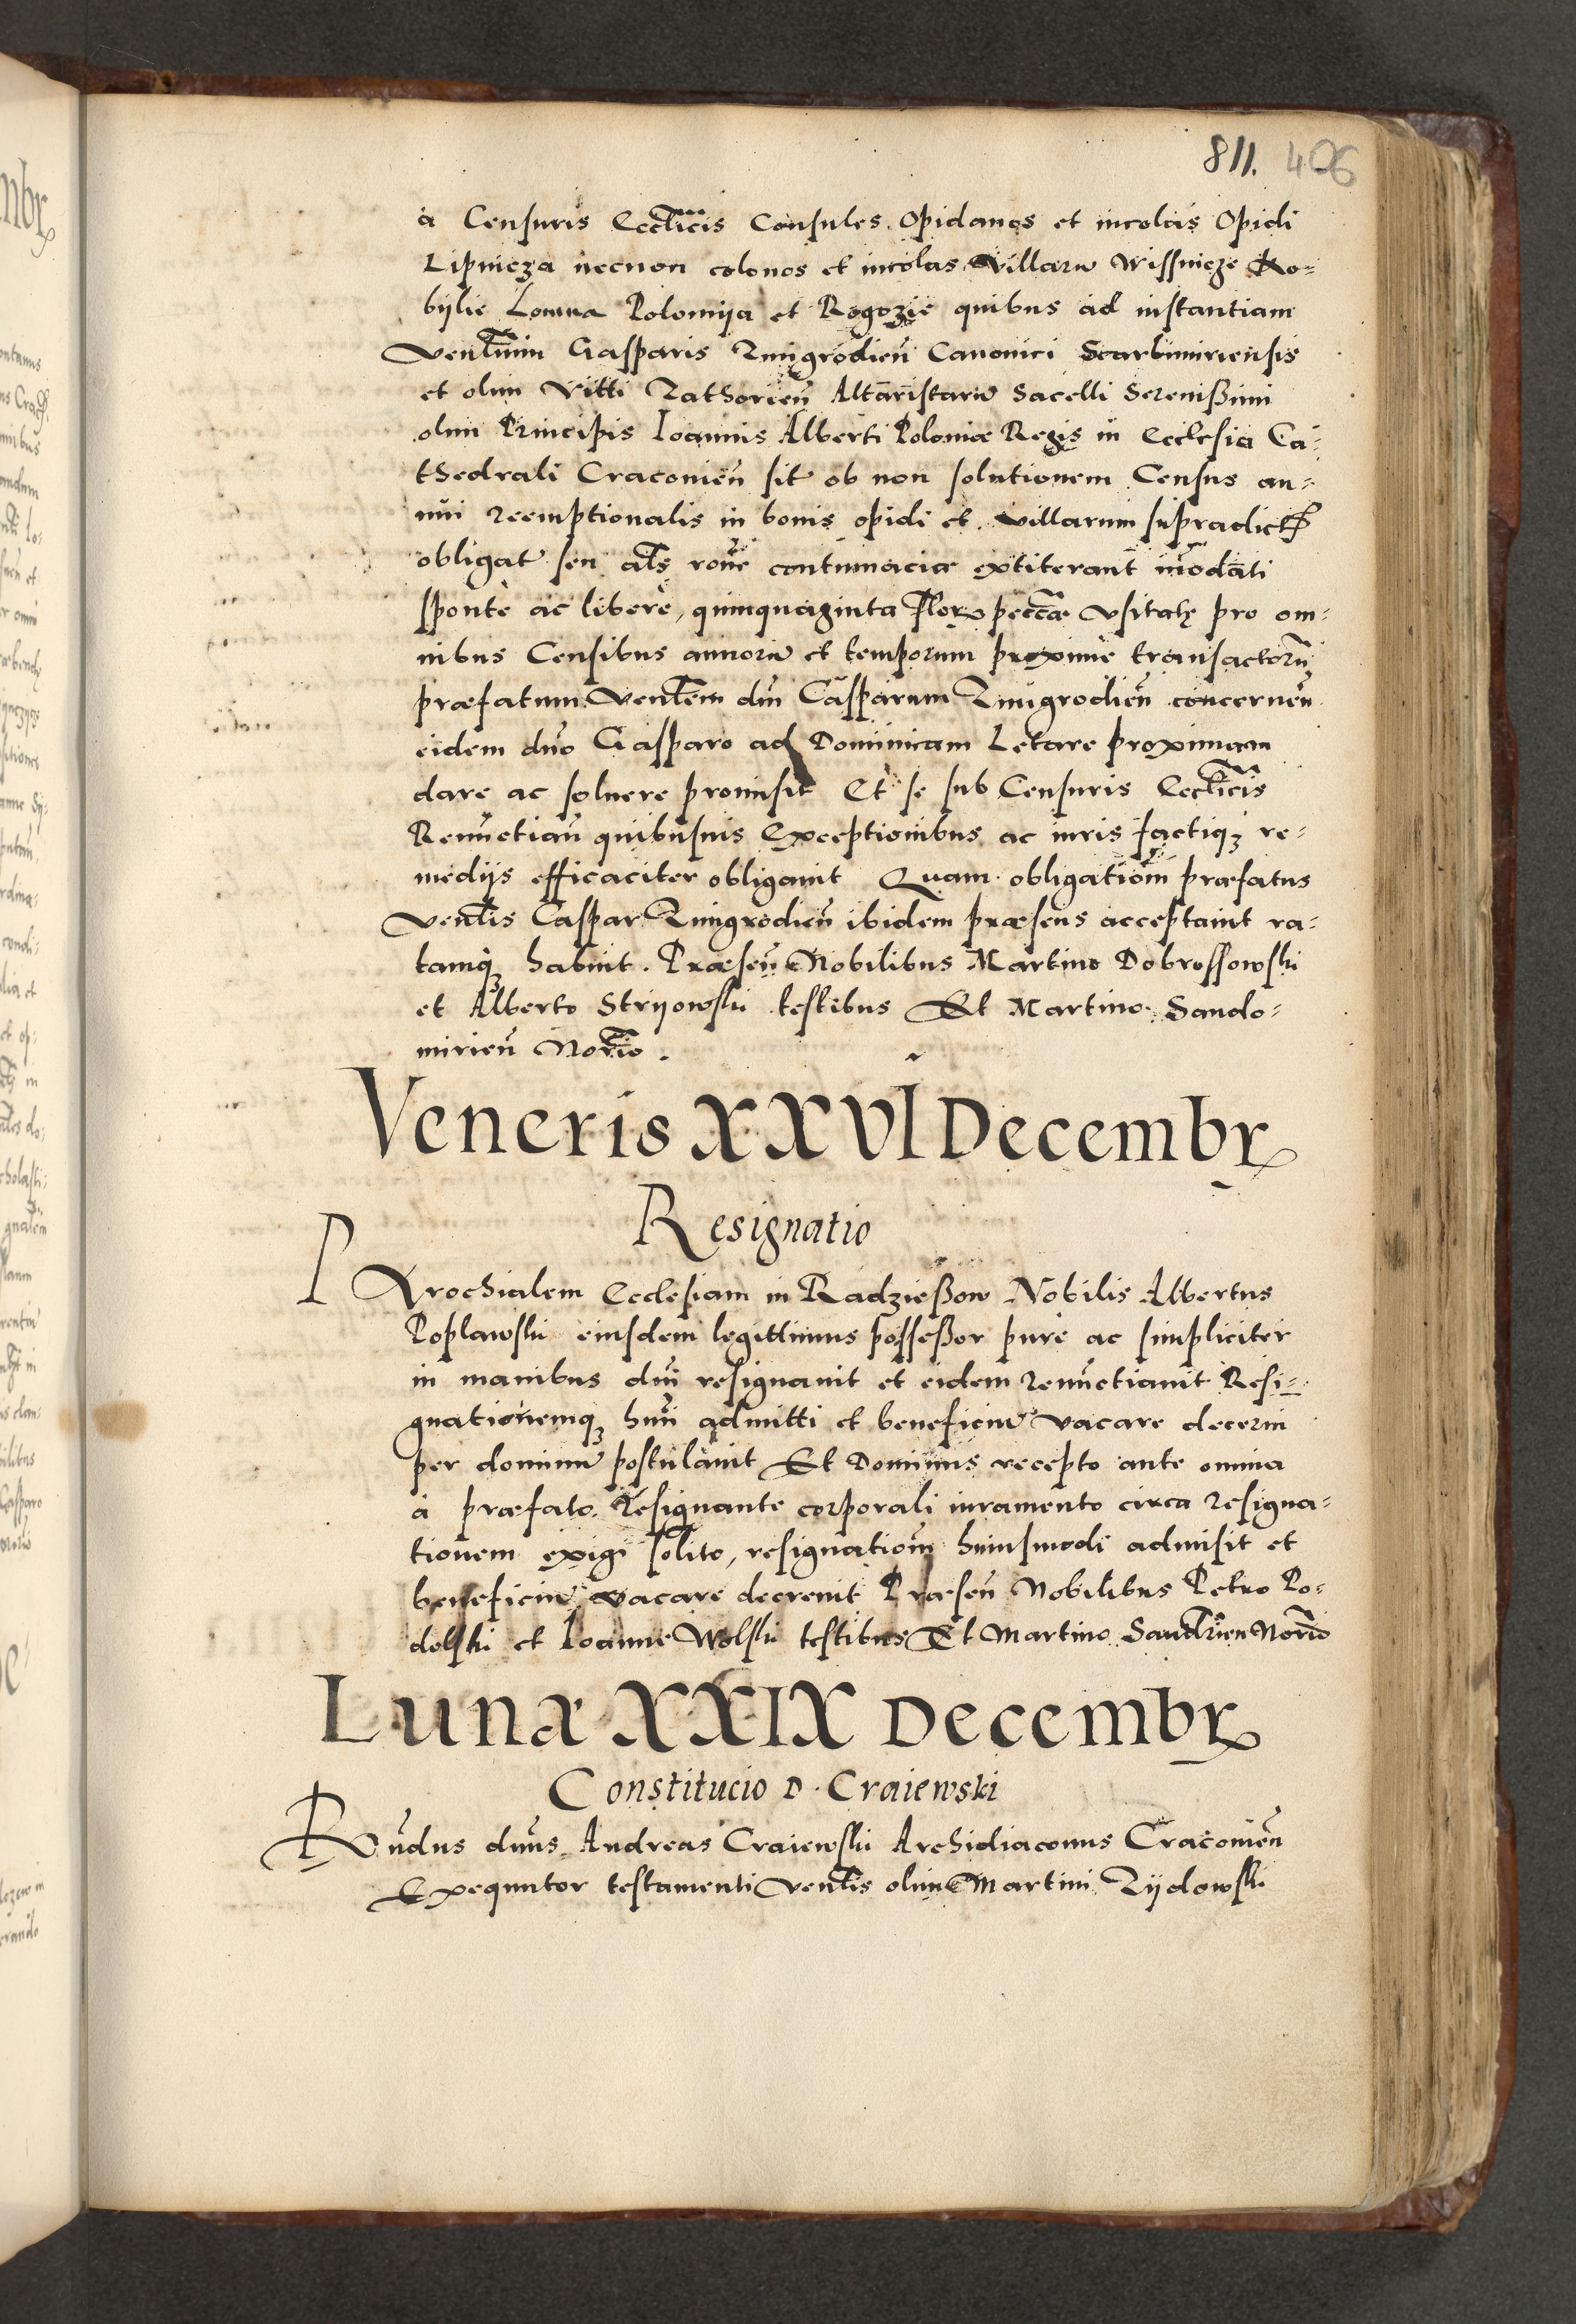 811. 406
à Censuris Ecclīcis Consules Opidanos et incolas Opidi
Lipnicza necnon colonos et incolas Villarū Wissnicze Ko-
bijlie Lomna Polomija et Rogozie quibus ad instantiam
Venl̄ium Gasparis Zmigrodien̄ Canonici Scarbimiriensis
et olim Vitti Zathorien̄ Altaristarū Sacelli Serenißimi
olim Principis Ioannis Alberti Poloniæ Regis in Ecclesia Ca-
thedrali Cracovien̄ sit ob non solutionem Census an-
nui reemptionalis in bonis opidi et villarum supradict
obligat seu al̄s rōne contumaciæ extiterant īnodati
sponte ac liberè, quinquaginta Flor pecc̄æ Vsitatę pro om-
nibus Censibus annorū et temporum proxime transactorū
præfatum Venl̄em dn̄m Casparum Zmigrodien̄ concernen̄
eidem dn̄o Gasparo ad Dominicam Letare proximam
dare ac soluere promisit Et se sub Censuris Eccl̄icis
Renūctian̄ quibusuis Exceptionibus ac iuris factiq3 re-
medijs efficaciter obligauit Quam obligatiōm præfatus
Venl̄is Caspar Zmigrodien̄ ibidem præsens acceptauit ra-
tamq3 habuit. Præsen̄ Nobilibus Martino Dobrossowski
et Alberto Strijowski testibus Et Martino Sando-
mirien̄ Nor̄io.
Veneris XXVI Decembr
Resignatio
Parochialem Ecclesiam in Radzießow Nobilis Albertus
Poplawski eiusdem legittimus posseßor pure ac simpliciter
in manibus dn̄i resignauit et eidem renūctiauit Resi-
gnationemq3 hm̄oi admitti et beneficiū vacare decerni
per dominū postulauit Et Dominus recepto ante omnia
à præfato Resignante corporali iuramento circa resigna-
tionem exigi solito, resignatiōm huiusmodi admisit et
beneficiū vacare decreuit Præsen̄ Nobilibus Petro Po-
dolski et Ioanne Wolski testibus Et Martino Sand̄rien Nor̄io
Lunæ XXIX Decembr
Constitucio D. Craiewski
Rn̄dus dn̄us Andreas Craiewski Archidiaconus Cracovien̄
Exequutor testamenti Venl̄is olim Martini Zijdowski